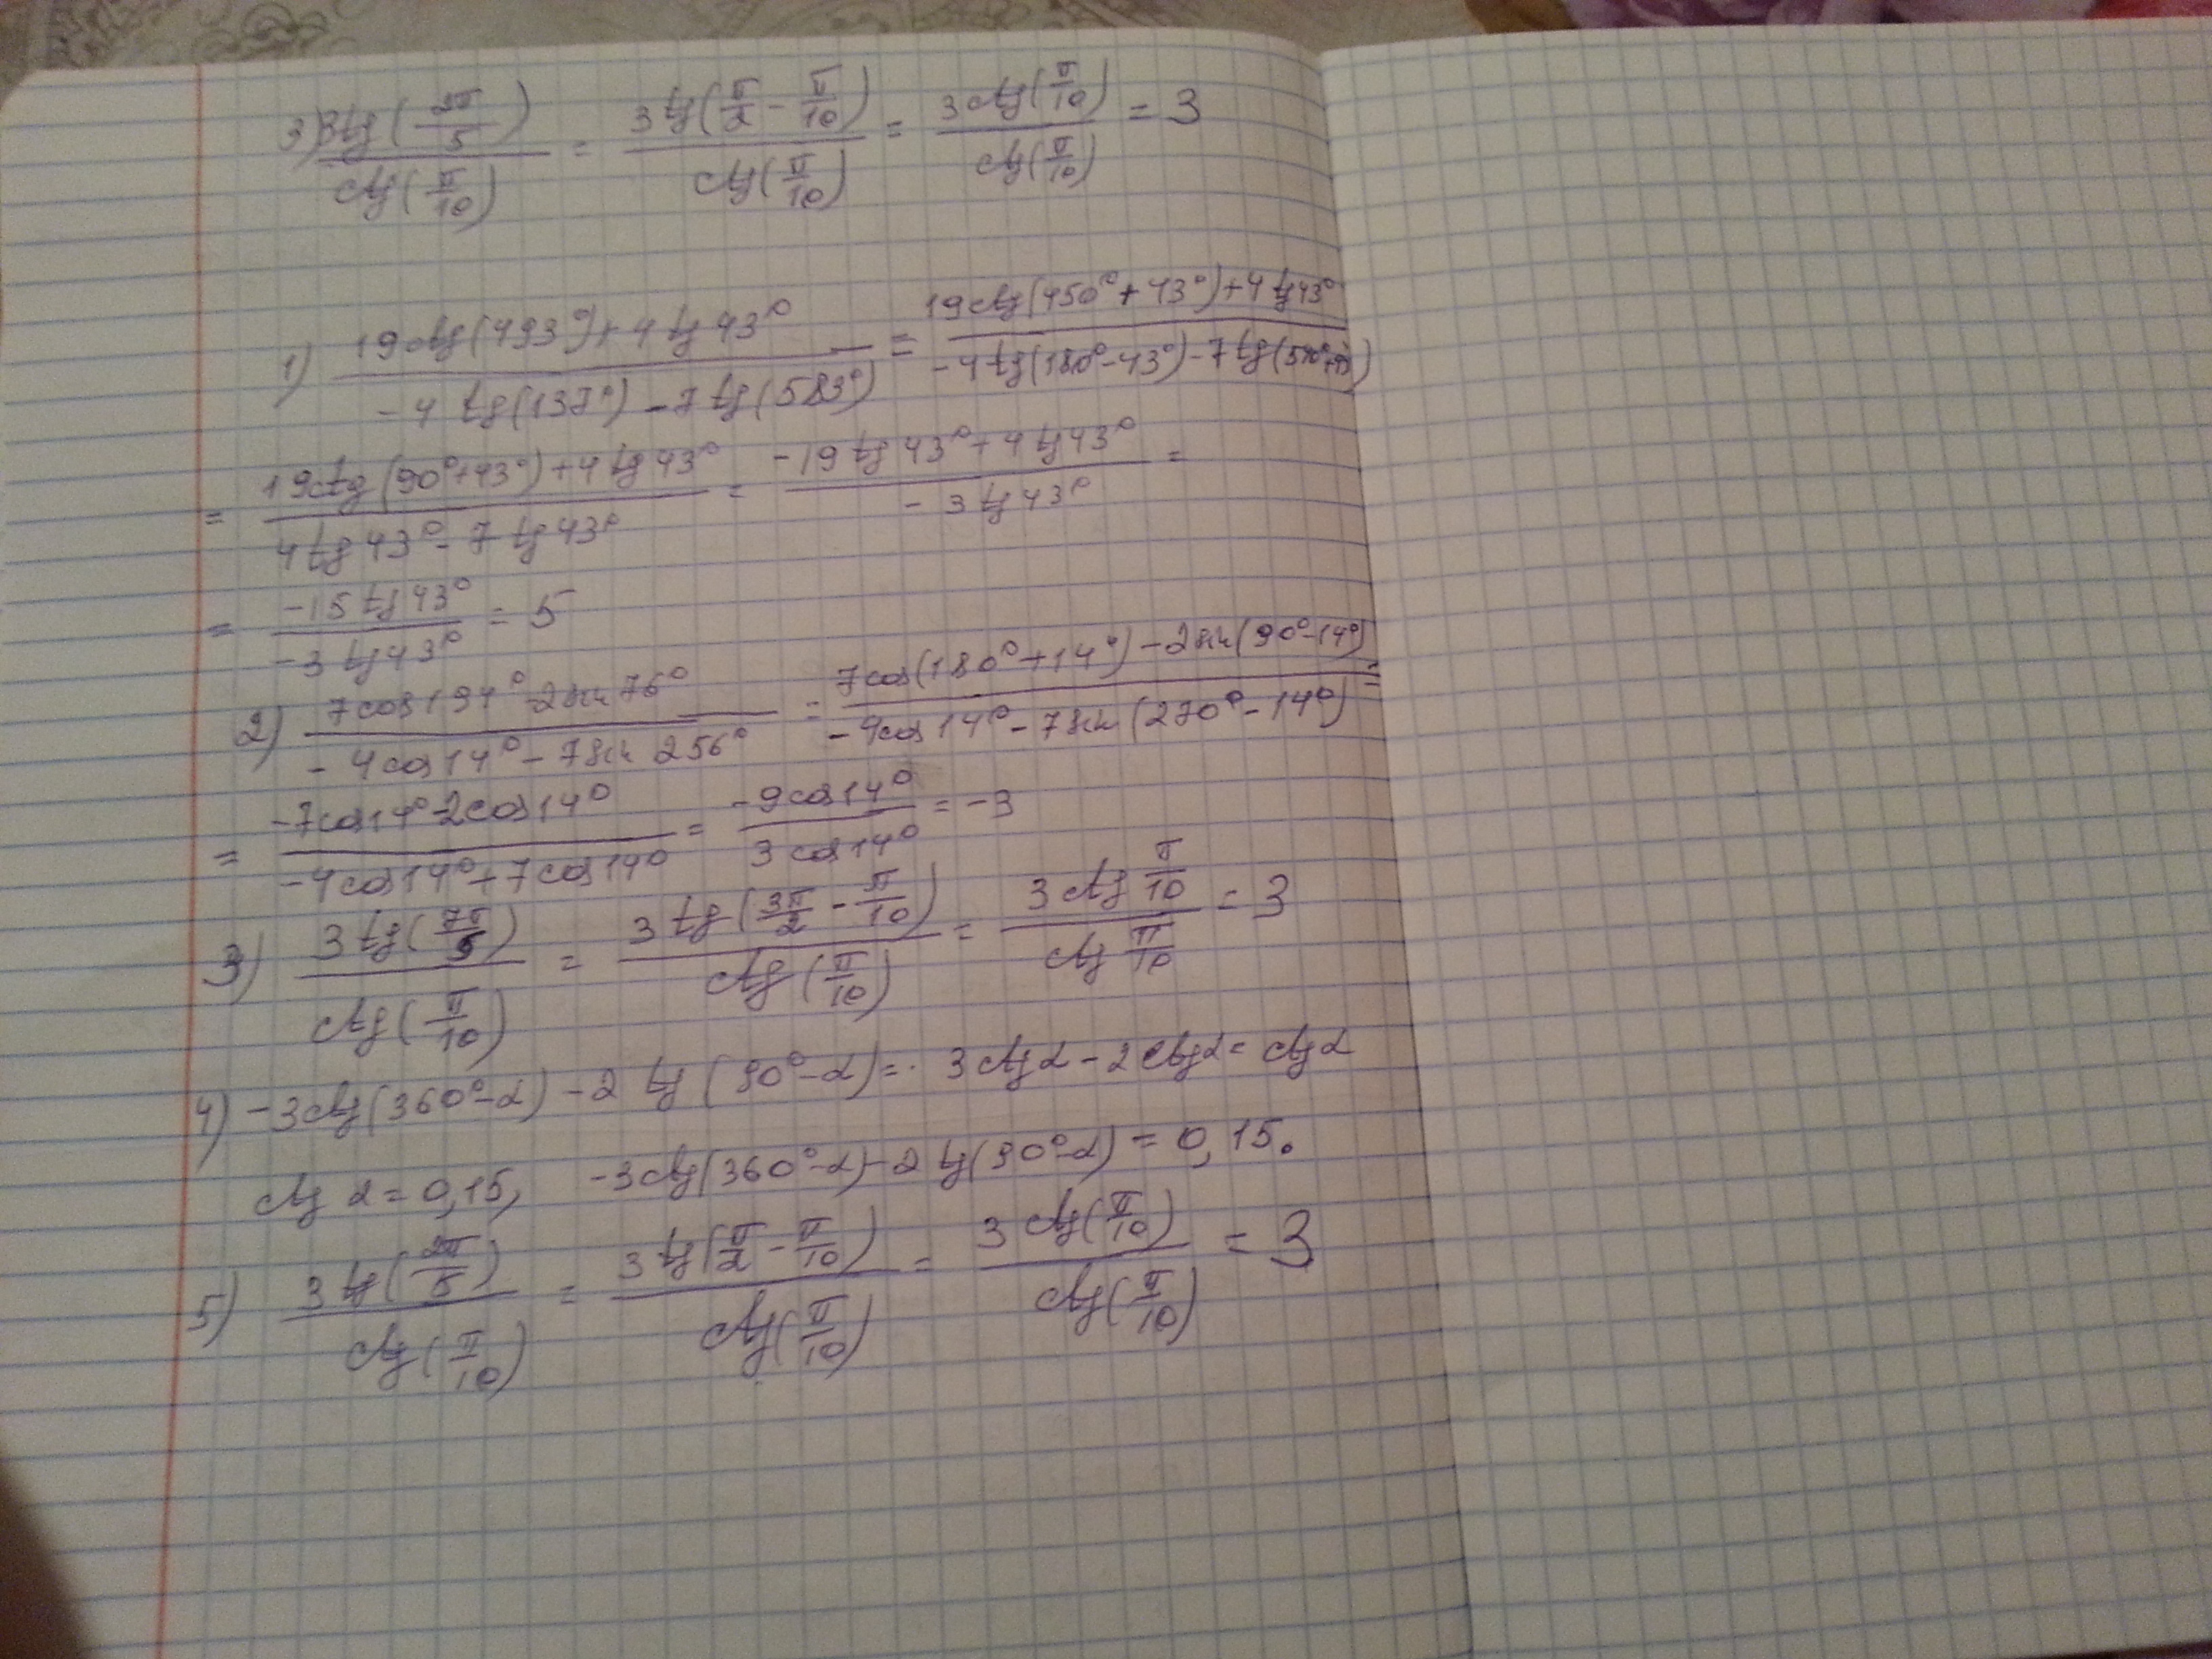 3) 3tg(2π/5) / ctg(π/10) = 3tg(π/2 - π/10) / ctg(π/10) = 3ctg(π/10) / ctg(π/10) = 3
1) (19ctg(493°) + 4tg43°) / (-4tg(137°) - 7tg(583°)) = (19ctg(450° + 43°) + 4tg43°) / (-4tg(180° - 43°) - 7tg(540° + 43°))
= (19ctg(90° + 43°) + 4tg43°) / (4tg43° - 7tg43°) = (-19tg43° + 4tg43°) / (-3tg43°) =
= -15tg43° / -3tg43° = 5
2) (7cos194° - 2sin76°) / (-4cos14° - 7sin256°) = (7cos(180° + 14°) - 2sin(90° - 14°)) / (-4cos14° - 7sin(270° - 14°)) =
= (-7cos14° - 2cos14°) / (-4cos14° + 7cos14°) = -9cos14° / 3cos14° = -3
3) 3tg(7π/5) / ctg(π/10) = 3tg(3π/2 - π/10) / ctg(π/10) = 3ctg π/10 / ctg π/10 = 3
4) -3ctg(360° - α) - 2tg(90° - α) = 3ctgα - 2ctgα = ctgα
ctg α = 0,15, -3ctg(360° - α) - 2tg(90° - α) = 0,15.
5) 3tg(2π/5) / ctg(π/10) = 3tg(π/2 - π/10) / ctg(π/10) = 3ctg(π/10) / ctg(π/10) = 3